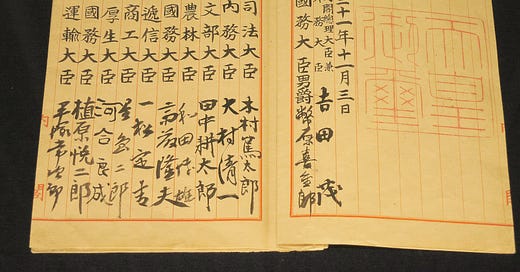 天皇
御璽
十一年十一月三日
閣總理大臣兼
務大臣 吉田茂
國務大臣男爵幣原喜重郎
司法大臣 木村篤太郎
内務大臣 大村清一
文部大臣 田中耕太郎
農林大臣 和田博雄
國務大臣 斎藤隆夫
遞信大臣 一松定吉
商工大臣 星島二郎
厚生大臣 河合良成
國務大臣 植原悦二郎
運輸大臣 平塚常次郎
内閣